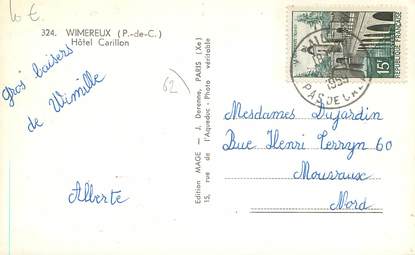 10 €
324. WIMEREUX (P.-de-C.)
Hôtel Carillon
62
Gros baisers
de Wimille
Alberte
Edition MAGE — J. Derenne, PARIS (Xe)
15, rue de l'Aqueduc - Photo véritable
15F
REPUBLIQUE FRANÇAISE
PAS DE CALAIS
Mesdames Dujardin
Rue Henri Terryn 60
Mouvaux
Nord